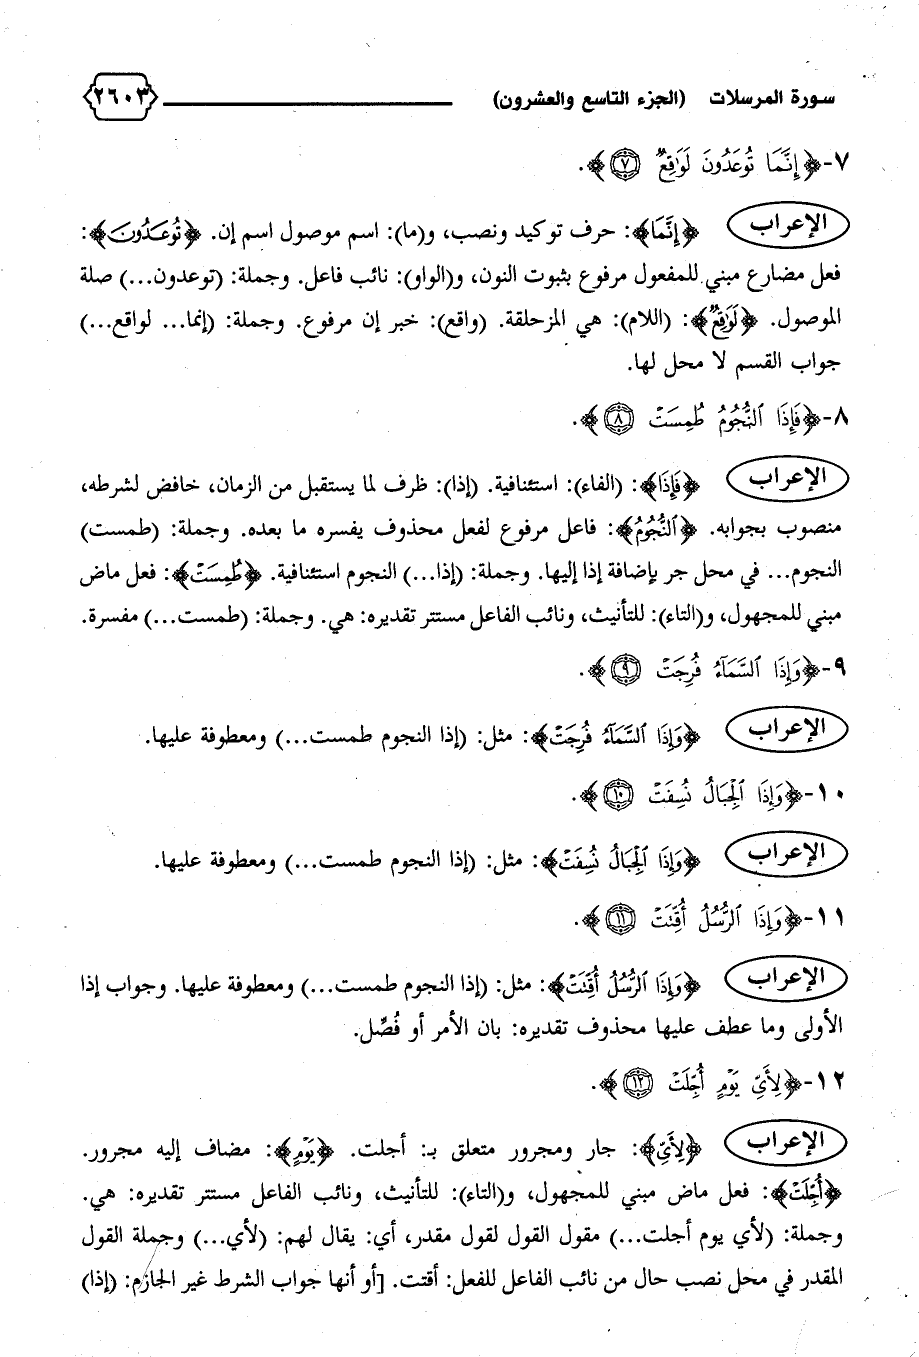 سورة المرسلات (الجزء التاسع والعشرون) ٢٦٠٣
٧-﴿إِنَّمَا تُوعَدُونَ لَوَٰقِعٌ ٧﴾.
الإعراب ﴿إِنَّمَا﴾: حرف توكيد ونصب، و(ما): اسم موصول اسم إن. ﴿تُوعَدُونَ﴾:
فعل مضارع مبني للمفعول مرفوع بثبوت النون، و(الواو): نائب فاعل. وجملة: (توعدون...) صلة
الموصول. ﴿لَوَٰقِعٌ﴾: (اللام): هي المزحلقة. (واقع): خبر إن مرفوع. وجملة: (إنما... لواقع...)
جواب القسم لا محل لها.
٨-﴿فَإِذَا ٱلنُّجُومُ طُمِسَتْ ٨﴾.
الإعراب ﴿فَإِذَا﴾: (الفاء): استئنافية. (إذا): ظرف لما يستقبل من الزمان، خافض لشرطه،
منصوب بجوابه. ﴿ٱلنُّجُومُ﴾: فاعل مرفوع لفعل محذوف يفسره ما بعده. وجملة: (طمست)
النجوم... في محل جر بإضافة إذا إليها. وجملة: (إذا...) النجوم استئنافية. ﴿طُمِسَتْ﴾: فعل ماض
مبني للمجهول، و(التاء): للتأنيث، ونائب الفاعل مستتر تقديره: هي. وجملة: (طمست...) مفسرة.
٩-﴿وَإِذَا ٱلسَّمَآءُ فُرِجَتْ ٩﴾.
الإعراب ﴿وَإِذَا ٱلسَّمَآءُ فُرِجَتْ﴾: مثل: (إذا النجوم طمست...) ومعطوفة عليها.
١٠-﴿وَإِذَا ٱلْجِبَالُ نُسِفَتْ ١٠﴾.
الإعراب ﴿وَإِذَا ٱلْجِبَالُ نُسِفَتْ﴾: مثل: (إذا النجوم طمست...) ومعطوفة عليها.
١١-﴿وَإِذَا ٱلرُّسُلُ أُقِّتَتْ ١١﴾.
الإعراب ﴿وَإِذَا ٱلرُّسُلُ أُقِّتَتْ﴾: مثل: (إذا النجوم طمست...) ومعطوفة عليها. وجواب إذا
الأولى وما عطف عليها محذوف تقديره: بان الأمر أو فُصِّل.
١٢-﴿لِأَىِّ يَوْمٍ أُجِّلَتْ ١٢﴾.
الإعراب ﴿لِأَىِّ﴾: جار ومجرور متعلق بـ: أجلت. ﴿يَوْمٍ﴾: مضاف إليه مجرور.
﴿أُجِّلَتْ﴾: فعل ماض مبني للمجهول، و(التاء): للتأنيث، ونائب الفاعل مستتر تقديره: هي.
وجملة: (لأي يوم أجلت...) مقول القول لقول مقدر، أي: يقال لهم: (لأي...) وجملة القول
المقدر في محل نصب حال من نائب الفاعل للفعل: أقتت. [أو أنها جواب الشرط غير الجازم: (إذا)